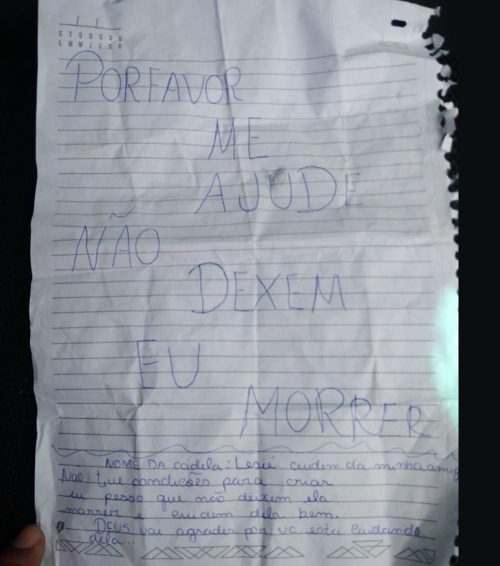 S T Q Q S S D
L M M J V S D
PORFAVOR
ME
AJUDE
NÃO
DEXEM
EU
MORRER
NOME DA cadela: cuidem da minha amig
Nao tive condições para criar
eu pesso que não deixem ela
morrer e cuidem dela bem.
DEUS vai agradeser por vc esta Cuidando
dela...